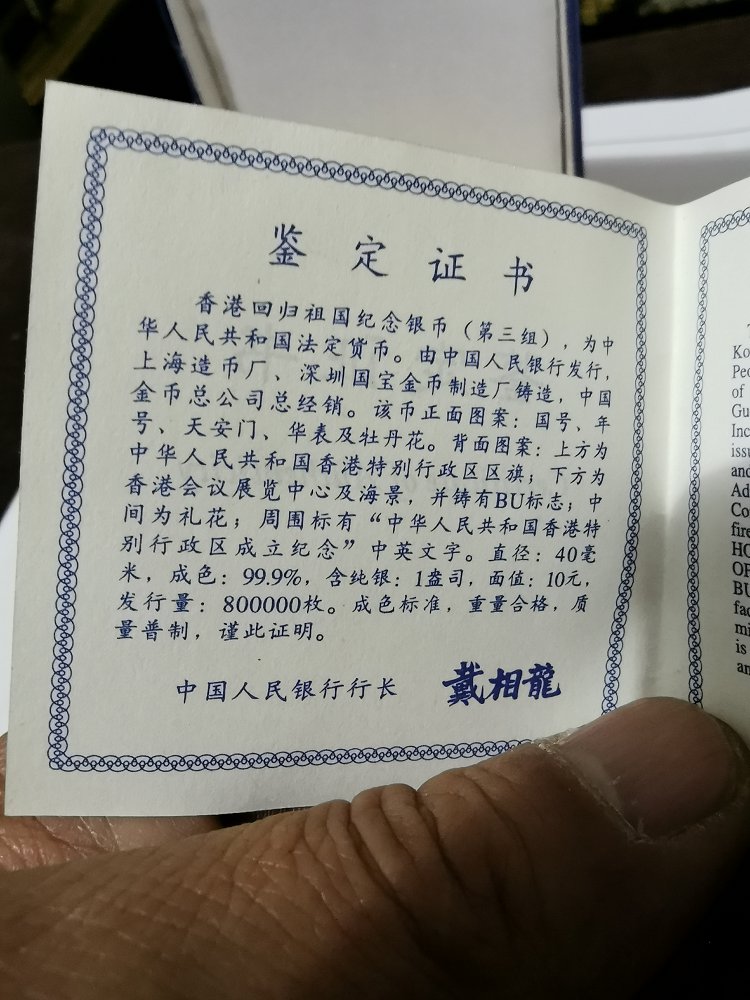 鉴定证书
香港回归祖国纪念银币（第三组），为中
华人民共和国法定货币。由中国人民银行发行，
上海造币厂、深圳国宝金币制造厂铸造，中国
金币总公司总经销。该币正面图案：国号、年
号、天安门、华表及牡丹花。背面图案：上方为
中华人民共和国香港特别行政区区旗；下方为
香港会议展览中心及海景，并铸有BU标志；中
间为礼花；周围标有“中华人民共和国香港特
别行政区成立纪念”中英文字。直径：40毫
米，成色：99.9%，含纯银：1盎司，面值：10元，
发行量：800000枚。成色标准，重量合格，质
量普制，谨此证明。
中国人民银行行长 戴相龍
Ko
Peo
of
Gu
Inc
issu
and
Ad
Co
fire
HO
OF
BU
fac
mi
is
an